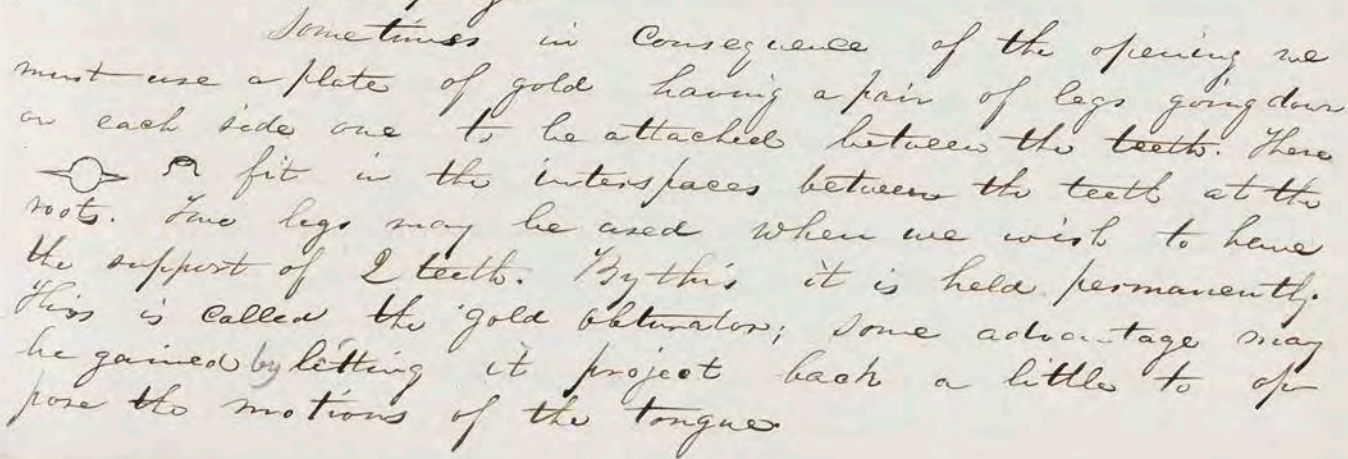 Sometimes in Consequence of the opening we
must use a plate of gold having a pair of legs going down
on each side one to be attached between the teeth. These
fit in the interspaces between the teeth at the
roots. Two legs may be used when we wish to have
the support of 2 teeth. By this it is held permanently.
This is Called the gold obturator; Some advantage may
be gained by letting it project back a little to op
pose the motions of the tongue